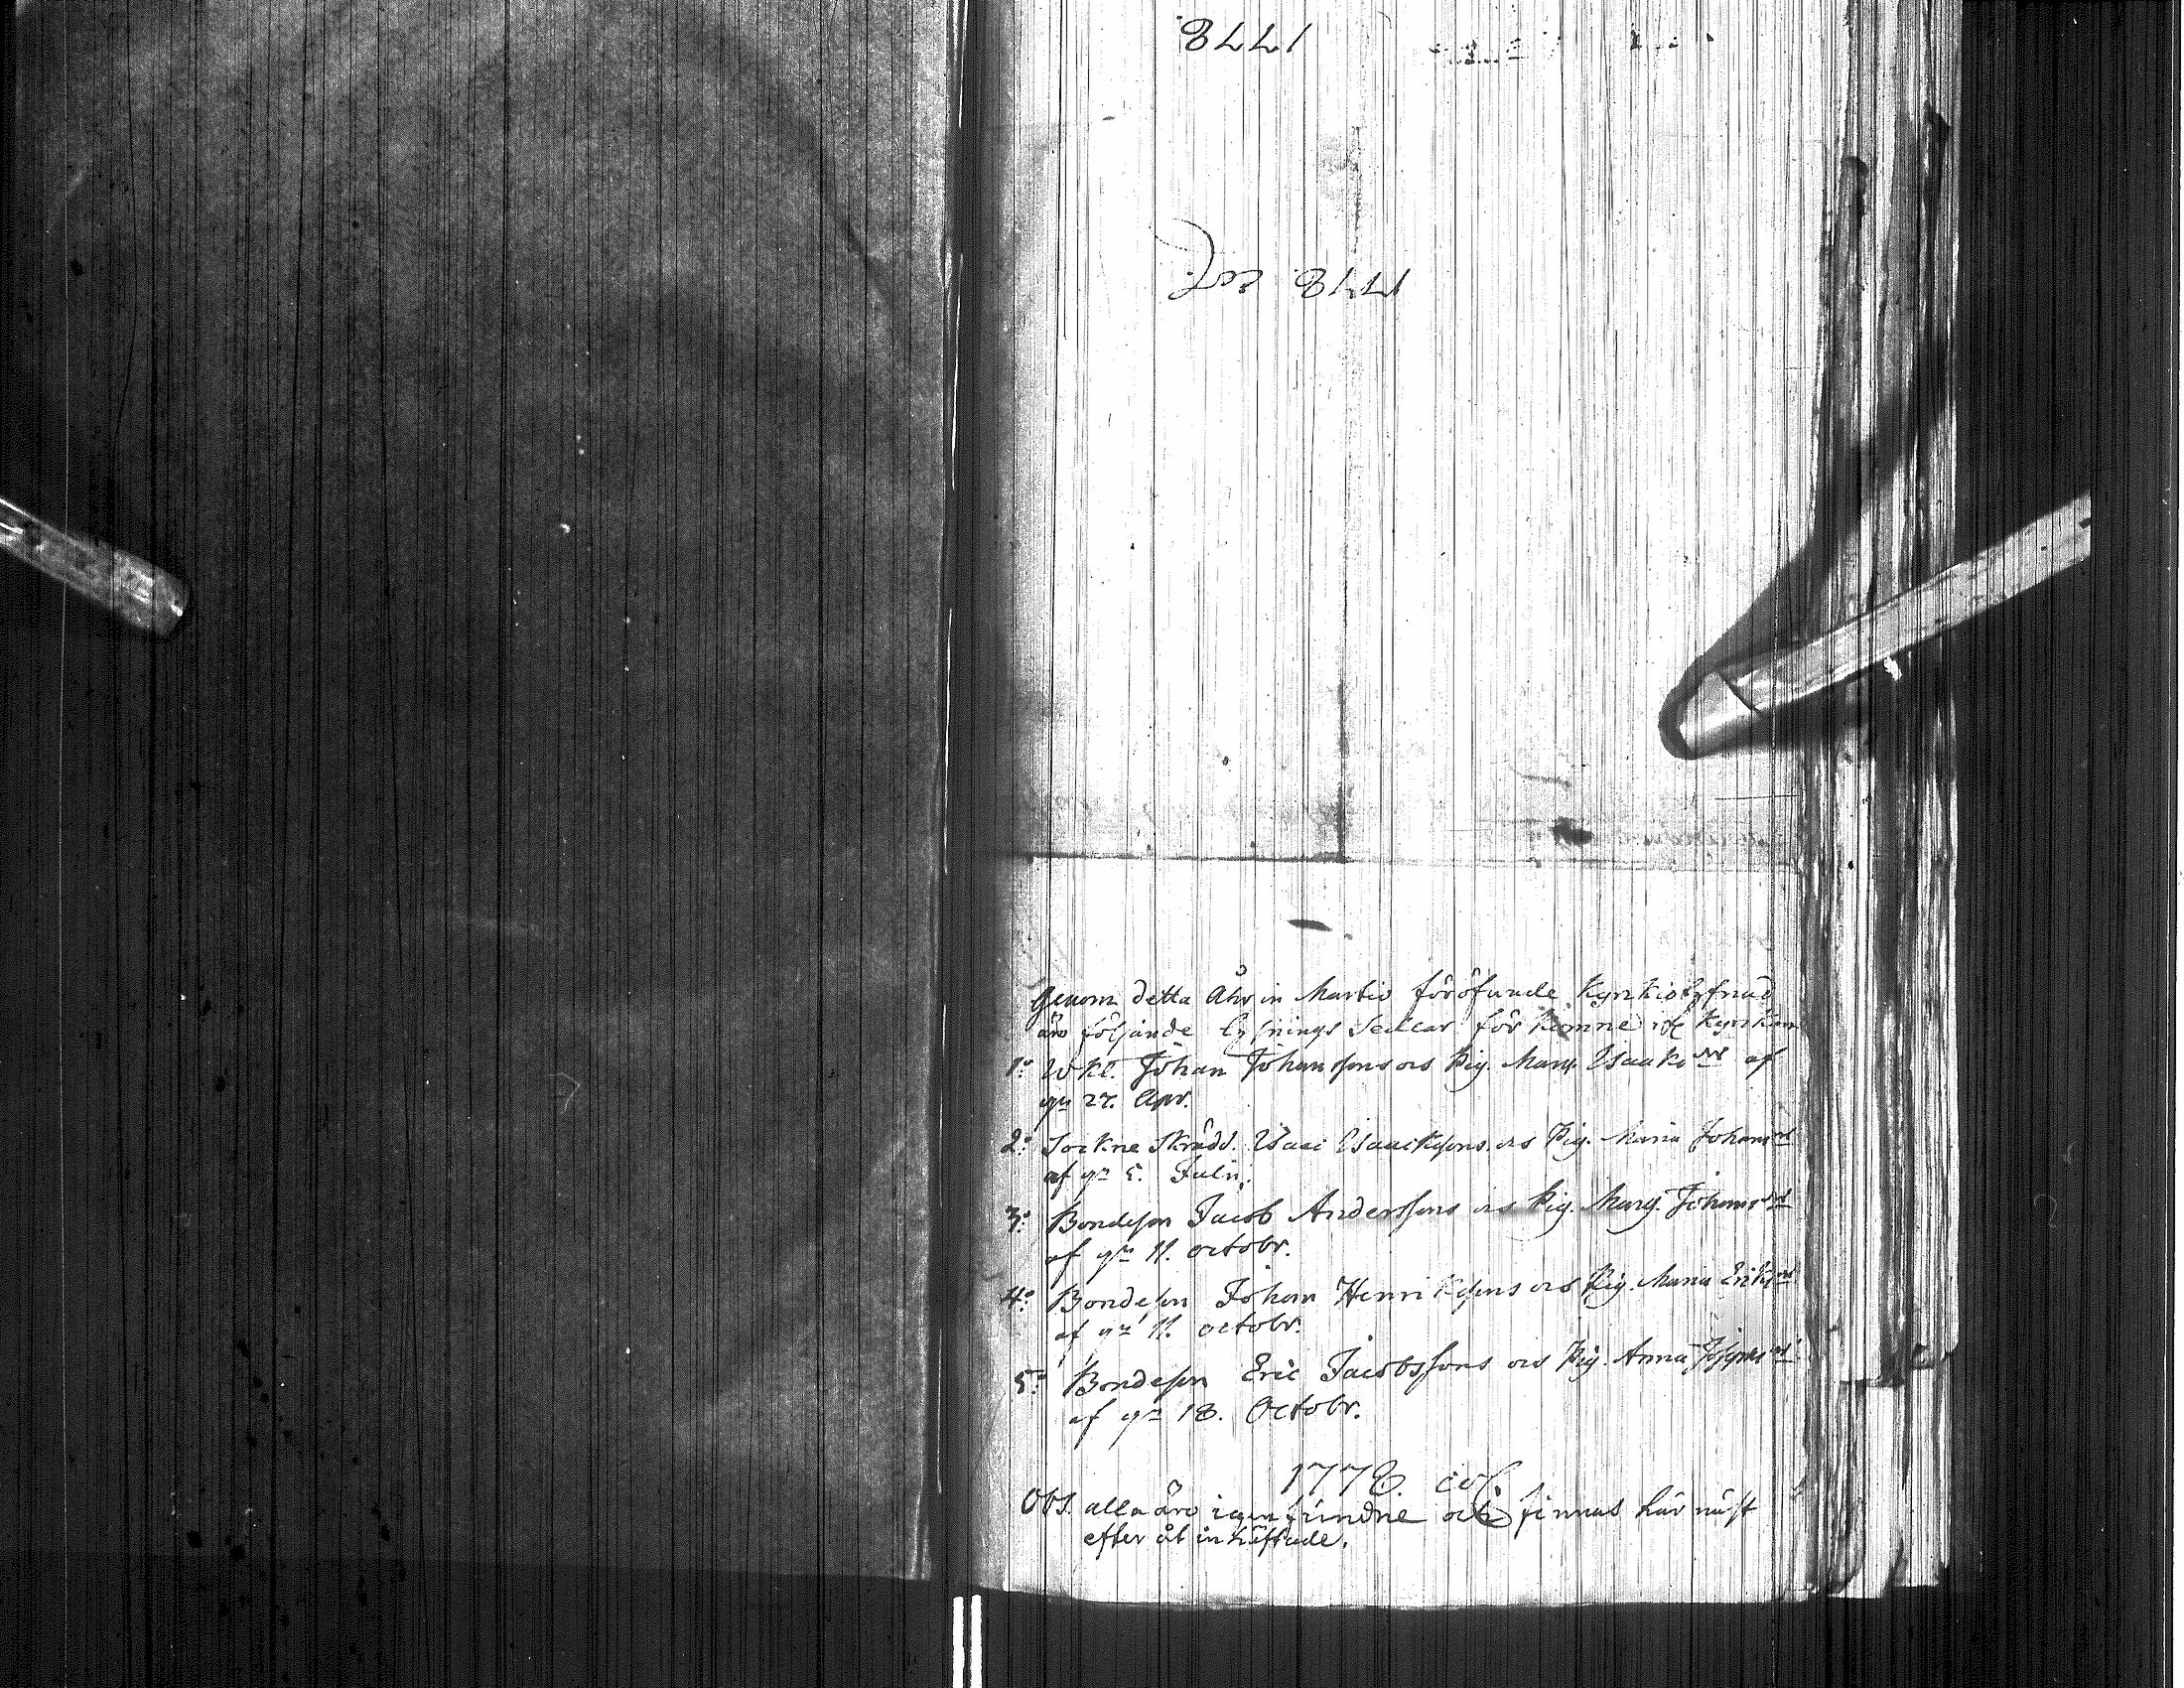 1778
1778
Genom detta Åhr in Martio föröfvade Kyrkiotjufnad
äro följande lysnings Sedlar förkomne utr Kyrkian
1:o Johan Johansson ocs Pig. Marg. Isaks dr af
27. Apr.
2:o Sockne Skrädd. Isaac Isaackssons ocs Pig. Maria Johans dr
af 5. Julii.
3:o Bondeson Jacob Anderssons ocs Pig. Marg. Johans dr
af 11. octobr.
4:o Bondeson Johan Henrikssons ocs Pig. Maria Eriks dr
af 11. octobr.
5:o Bondeson Eric Jacobssons ocs Pig. Anna
af 18. Octobr.
1778.
Obs. alla äro igenfundne och finnas här näst
efter åt inhäftade.